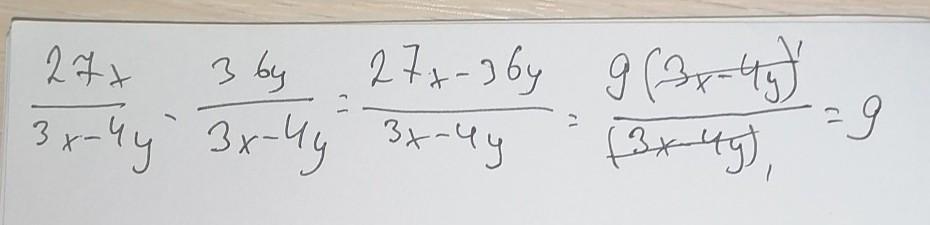 27x/(3x-4y) - 36y/(3x-4y) = (27x-36y)/(3x-4y) = 9(3x-4y)¹/(3x-4y)₁ = 9